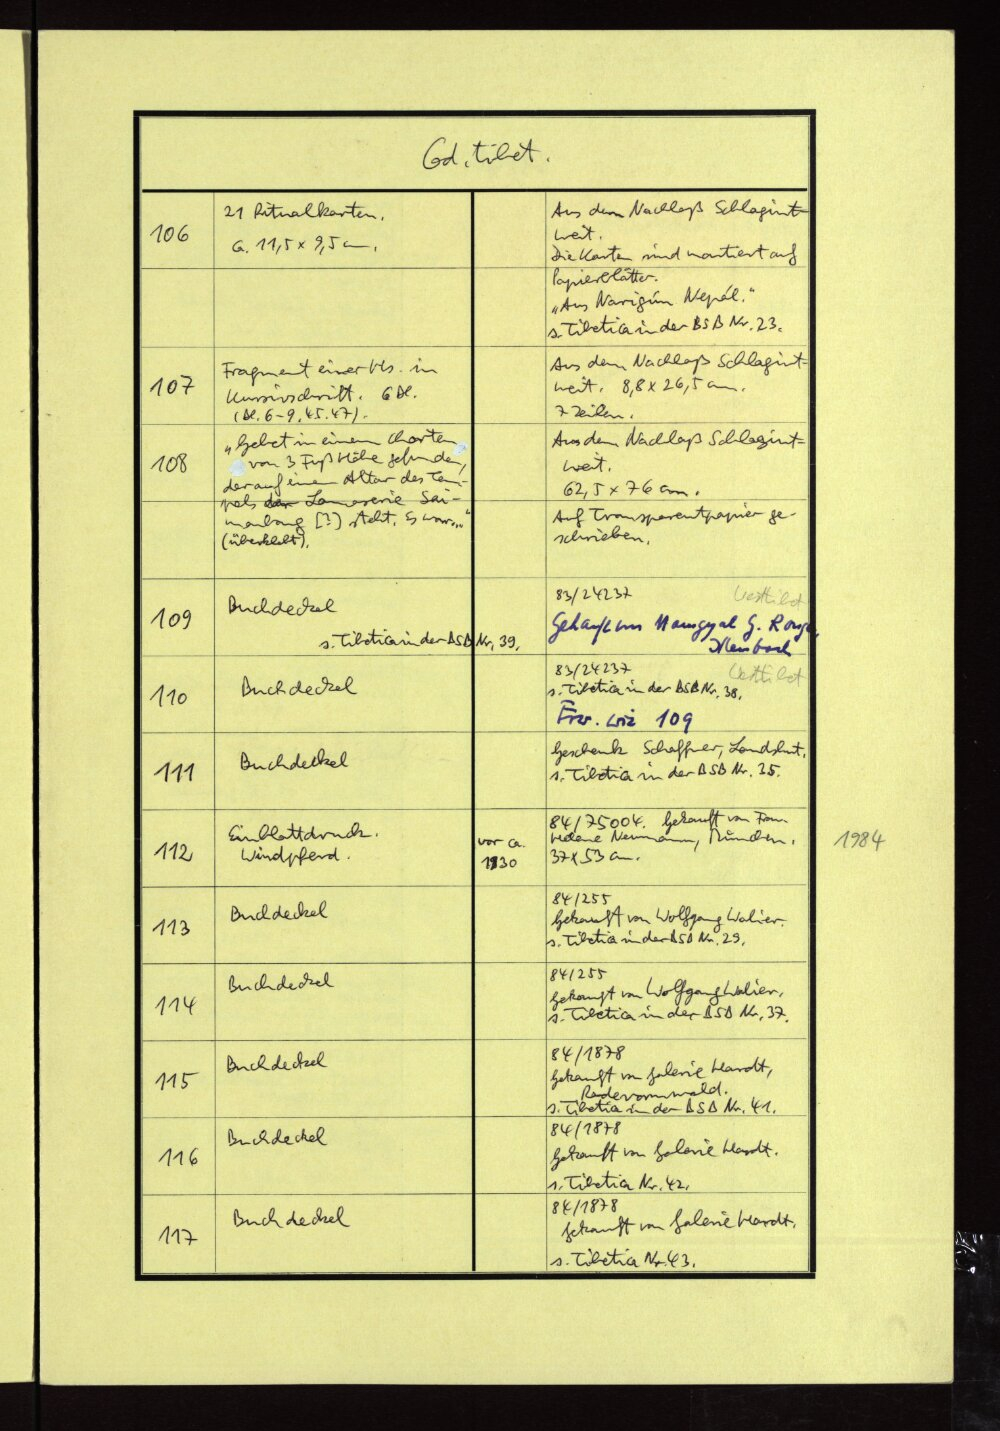 Cod. tibet.
106
21 Ritualkarten.
ca. 11,5 x 9,5 cm.
Aus dem Nachlaß Schlagint-
weit.
Die Karten sind montiert auf
Papierblätter.
„Aus Narigún Nepál."
s. Tibetica in der BSB Nr. 23.
107
Fragment einer Hs. in
Kursivschrift. 6 Bl.
(Bl. 6-9, 45. 47).
Aus dem Nachlaß Schlagint-
weit. 8,8 x 26,5 cm.
7 Zeilen.
108
„Gebet in einem Chorten
von 3 Fuß Höhe gefunden,
der auf einem Altar des Tem-
pels der Lamaserie Sai-
[?] steht. Es war..."
(überklebt).
Aus dem Nachlaß Schlagint-
weit.
62,5 x 76 cm.
Auf Transparentpapier ge-
schrieben.
109
Buchdeckel
s. Tibetica in der BSB Nr. 39.
83/24237 Westtibet
Gekauft von Namgyal G. Ronge,
110
Buchdeckel
83/24237 Westtibet
s. Tibetica in der BSB Nr. 38.
Erw. wie 109
111
Buchdeckel
Geschenk Schaffner, Landshut.
s. Tibetica in der BSB Nr. 35.
112
Einblattdruck.
Windpferd.
vor ca.
1930
84/75004. Gekauft von Frau
Neumann, München.
37 x 53 cm.
1984
113
Buchdeckel
84/255
Gekauft von Wolfgang Walier.
s. Tibetica in der BSB Nr. 29.
114
Buchdeckel
84/255
Gekauft von Wolfgang Walier.
s. Tibetica in der BSB Nr. 37.
115
Buchdeckel
84/1878
Gekauft von Galerie Hardt,
Radevormwald.
s. Tibetica in der BSB Nr. 41.
116
Buchdeckel
84/1878
Gekauft von Galerie Hardt.
s. Tibetica Nr. 42.
117
Buchdeckel
84/1878
Gekauft von Galerie Hardt.
s. Tibetica Nr. 43.